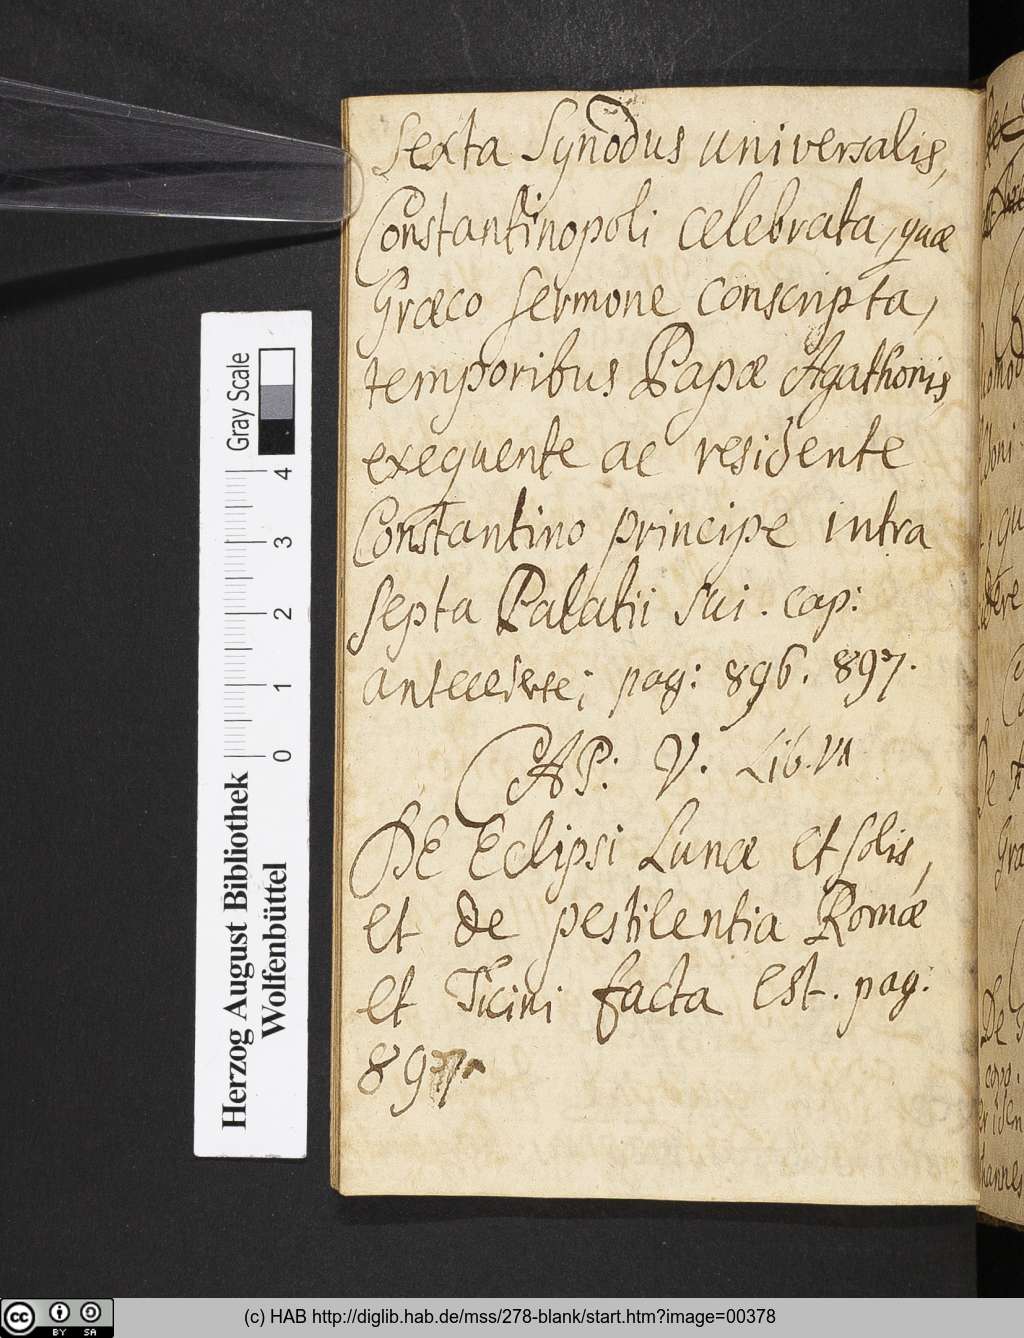 Sexta Synodus universalis,
Constantinopoli celebrata, quæ
Græco sermone conscripta,
temporibus Papæ Agathonis,
exequente ac residente
Constantino principe intra
septa Palatii sui. cap:
antecedente; pag: 896. 897.
CAP: V. Lib. VI
DE Eclipsi Lunæ et solis,
et de pestilentia Romæ
et Ticini facta est. pag:
897.
Gray Scale
4
3
2
1
0
Herzog August Bibliothek
Wolfenbüttel
cc BY SA
(c) HAB http://diglib.hab.de/mss/278-blank/start.htm?image=00378